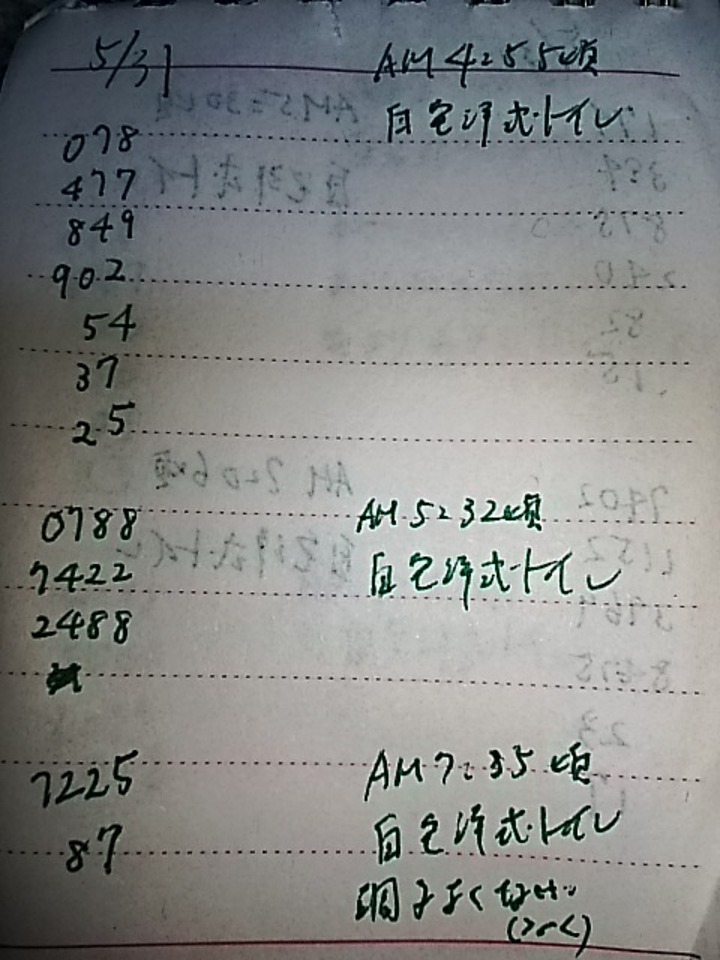 5/31 AM 4:55頃
自宅洋式トイレ
078
477
849
902
54
37
25
0788 AM 5:32頃
7422 自宅洋式トイレ
2488
7225 AM 7:35頃
87 自宅洋式トイレ
調子よくない
(>~<)